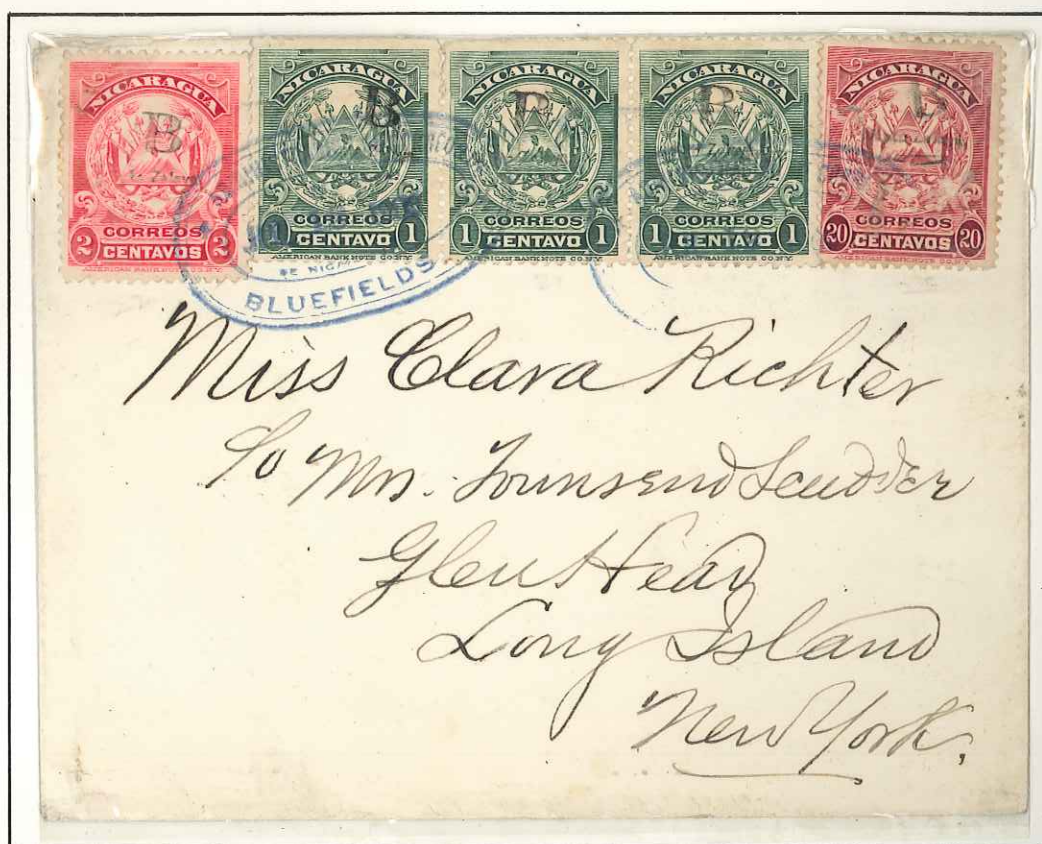 NICARAGUA
B
CORREOS
2 CENTAVOS 2
AMERICAN BANK NOTE CO.N.Y.
NICARAGUA
B
CORREOS
1 CENTAVO 1
AMERICAN BANK NOTE CO.N.Y.
NICARAGUA
CORREOS
1 CENTAVO 1
AMERICAN BANK NOTE CO.N.Y.
NICARAGUA
CORREOS
1 CENTAVO 1
AMERICAN BANK NOTE CO.N.Y.
NICARAGUA
CORREOS
20 CENTAVOS 20
AMERICAN BANK NOTE CO.N.Y.
BLUEFIELDS
Miss Clara Richter
c/o Mrs. Townsend Scudder
Glen Head
Long Island
New York.